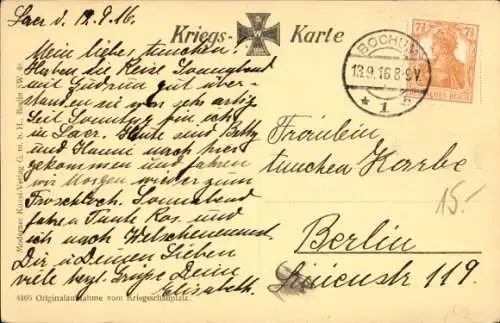 Laer d. 12.9.16.
Kriegs- Karte
W
Mein liebes Tunchen!
Haben die Reise Sonnabend
mit Gudrun gut über-
standen sie war sehr artig
Seit Sonntag bin ich
in Laer. Heute sind Betty
und Hanne nach hier
gekommen und fahren
wir Morgen wieder zum
Froschloch. Sonnabend
fahren Tante Ros. und
ich nach Welschenennest.
Dir u. Deinen Lieben
viele herzl. Grüße Deine
Elisabeth.
4165 Originalaufnahme vom Kriegsschauplatz.
Moderner Kunst-Verlag G. m. b. H., Berlin SW 48
BOCHUM
13.9.16 8-9 V.
* 1
7½ 7½
DEUTSCHES REICH
Fräulein
Tunchen Korbe
15.-
Berlin
Linienstr 119.